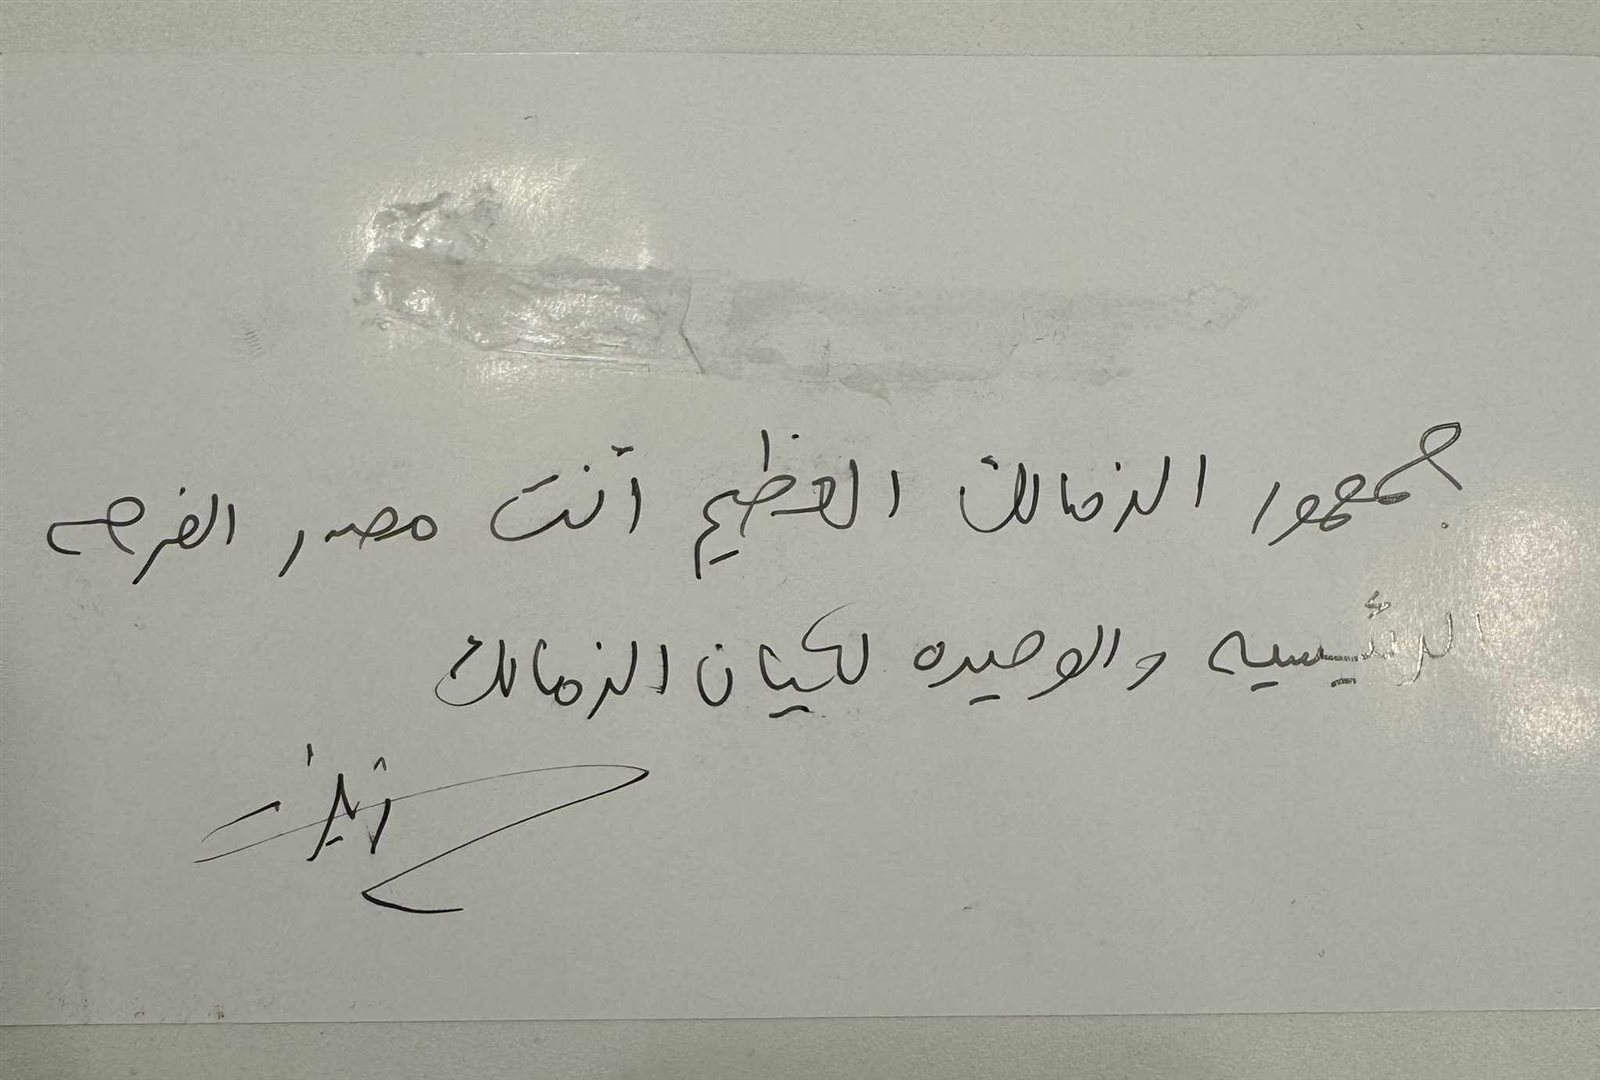 جمهور الزمالك العظيم أنت مصدر الفرحه
الرئيسيه والوحيده لكيان الزمالك